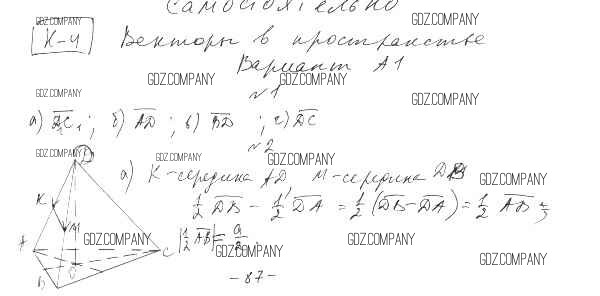 Самостоятельно
GDZ.COMPANY
GDZ.COMPANY
К-4 Векторы в пространстве
GDZ.COMPANY GDZ.COMPANY
Вариант А1
GDZ.COMPANY
№1
а) ; б) AD ; в) BD ; г) DC
№2
GDZ.COMPANY GDZ.COMPANY GDZ.COMPANY
D
а) K-середина AD M-середина DB
GDZ.COMPANY
1/2 DB - 1/2 DA = 1/2 (DB-DA) = 1/2 AB =>
K
M
GDZ.COMPANY |1/2 AB| = a/2 GDZ.COMPANY
A O C
GDZ.COMPANY
GDZ.COMPANY
B
-87-